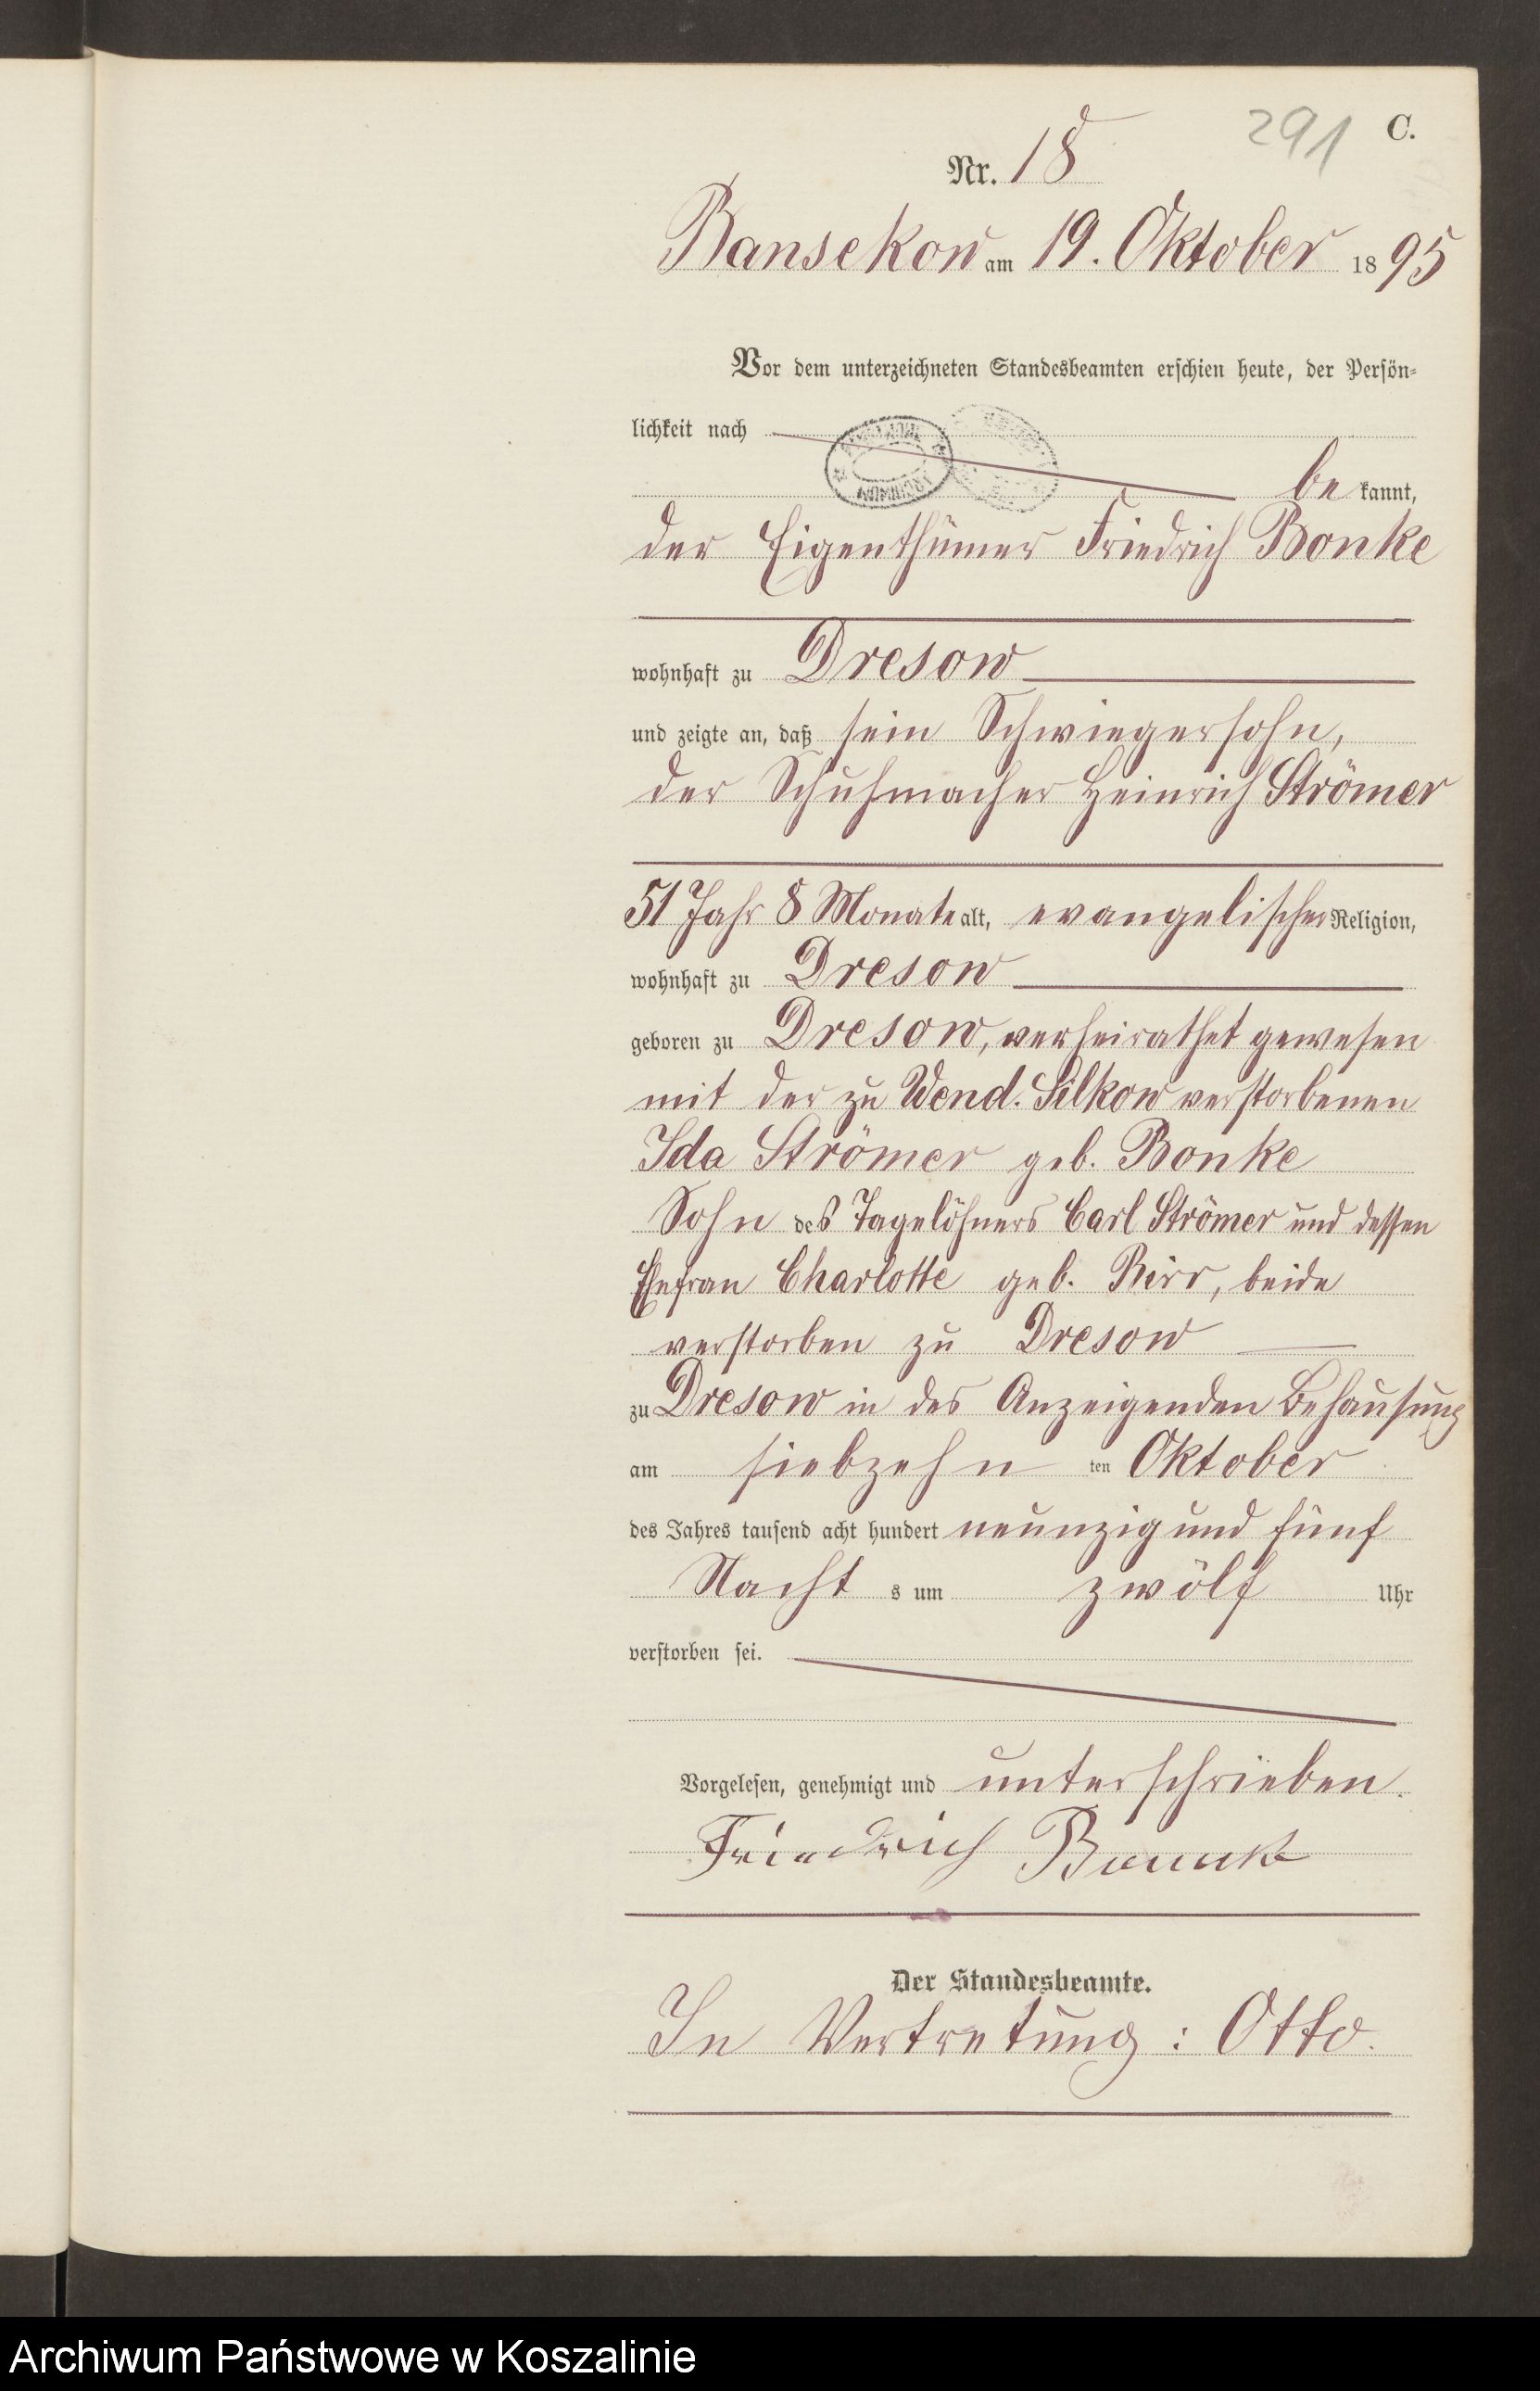 291 C.
Nr. 18
Bansekow am 19. Oktober 1895
Vor dem unterzeichneten Standesbeamten erschien heute, der Persön-
lichkeit nach
be kannt,
der Eigenthümer Friedrich Bonke
wohnhaft zu Dresow
und zeigte an, daß sein Schwiegersohn,
der Schuhmacher Heinrich Strömer
51 Jahr 8 Monate alt, evangelischer Religion,
wohnhaft zu Dresow
geboren zu Dresow, verheirathet gewesen
mit der zu Wend. Silkow verstorbenen
Ida Strömer geb. Bonke
Sohn des Tagelöhners Carl Strömer und dessen
Ehefrau Charlotte geb. Birr, beide
verstorben zu Dresow
zu Dresow in des Anzeigenden Behausung
am siebzehn ten Oktober
des Jahres tausend acht hundert neunzig und fünf
Nacht s um zwölf Uhr
verstorben sei.
Vorgelesen, genehmigt und unterschrieben.
Friedrich
Der Standesbeamte.
In Vertretung: Otto.
Archiwum Państwowe w Koszalinie